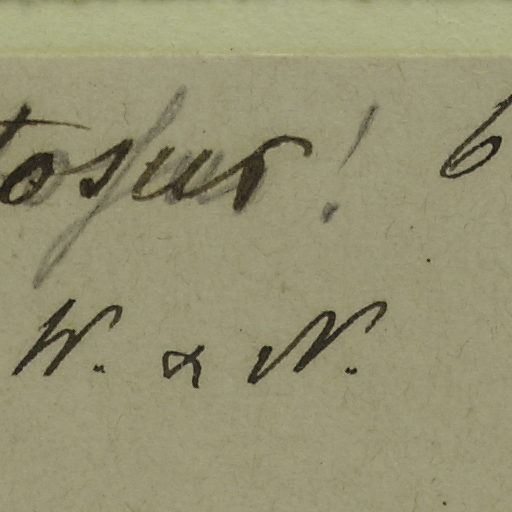 tosur! 6
W. & N.